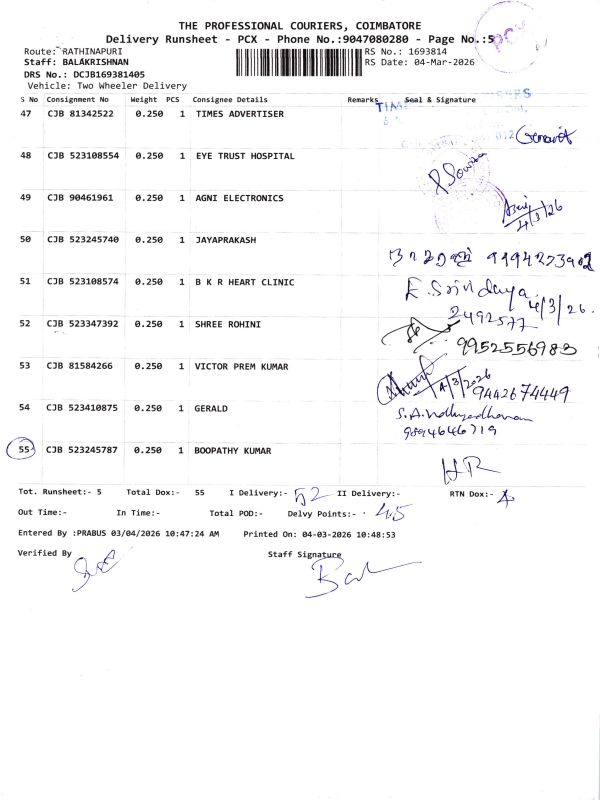 THE PROFESSIONAL COURIERS, COIMBATORE
Delivery Runsheet - PCX - Phone No.:9047080280 - Page No.:5
PCX
Route: RATHINAPURI
RS No.: 1693814
Staff: BALAKRISHNAN
RS Date: 04-Mar-2026
DRS No.: DCJB169381405
Vehicle: Two Wheeler Delivery
S No Consignment No Weight PCS Consignee Details Remarks Seal & Signature
47 CJB 81342522 0.250 1 TIMES ADVERTISER
48 CJB 523108554 0.250 1 EYE TRUST HOSPITAL
49 CJB 90461961 0.250 1 AGNI ELECTRONICS
4/3/26
50 CJB 523245740 0.250 1 JAYAPRAKASH
51 CJB 523108574 0.250 1 B K R HEART CLINIC
E. Srividaya 4/3/26.
52 CJB 523347392 0.250 1 SHREE ROHINI
2492577
9952556983
53 CJB 81584266 0.250 1 VICTOR PREM KUMAR
4/3/2026
9442674449
54 CJB 523410875 0.250 1 GERALD
9894646719
55 CJB 523245787 0.250 1 BOOPATHY KUMAR
HR
Tot. Runsheet:- 5 Total Dox:- 55 I Delivery:- 52 II Delivery:- RTN Dox:- 4
Out Time:- In Time:- Total POD:- Delvy Points:- 45
Entered By :PRABUS 03/04/2026 10:47:24 AM Printed On: 04-03-2026 10:48:53
Verified By Staff Signature